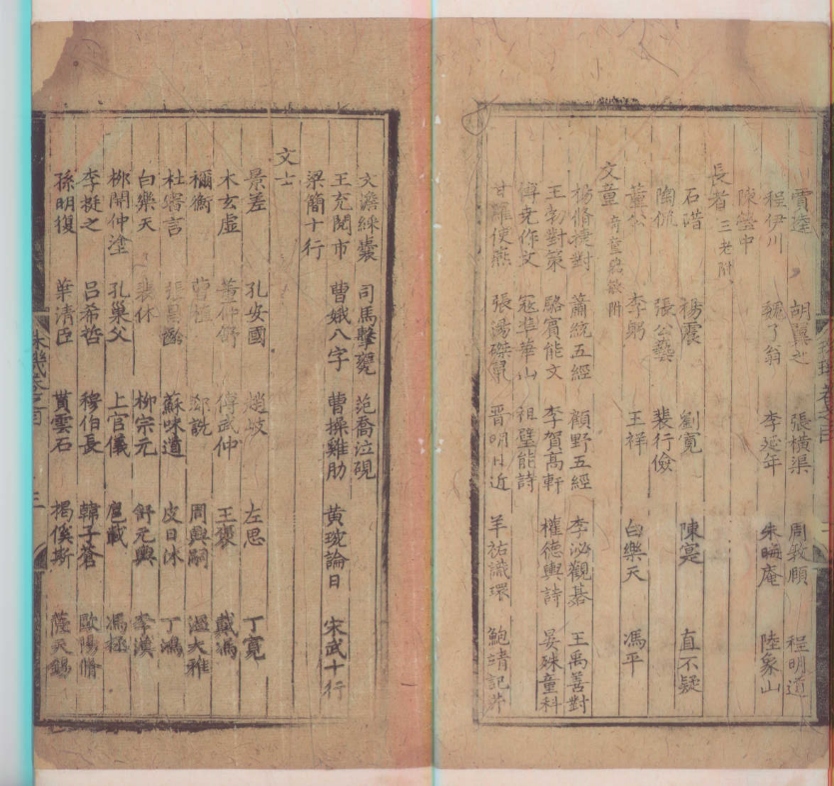 賈逵 胡翼之 張橫渠 周敦頤 程明道
程伊川 魏了翁 李延年 朱晦庵 陸象山
陳瑩中
長者 三老附
石碏 楊震 劉寬 陳寔 直不疑
陶侃 張公藝 裴行儉
董公 李躬 王祥 白樂天 馮平
文童 奇童 附
楊脩捷對 蕭統五經 顧野五經 李泌觀碁 王禹善對
王勃對策 駱賓能文 李賀高軒 權德輿詩 晏殊童科
傅堯作文 寇準華山 祖瑩能詩
甘羅使燕 張湯磔鼠 晋明日近 羊祜識環 鮑靖記井
文滂綵囊 司馬擊甕 范喬泣硯
王充閱市 曹娥八字 曹操雞肋 黃琬論日 宋武十行
梁簡十行
文士
景差 孔安國 趙岐 左思 丁寬
木玄虛 董仲舒 傅武仲 王褒 戴馮
禰衡 曹植 郤詵 周興嗣 溫大雅
杜審言 張 蘇味道 皮日休 丁鴻
白樂天 裴休 柳宗元 舒元輿 李漢
柳開仲塗 孔巢父 上官儀 扈載 馮極
李挺之 呂希哲 穆伯長 韓子蒼 歐陽脩
孫明復 葉清臣 貫雲石 揭傒斯 薩天錫